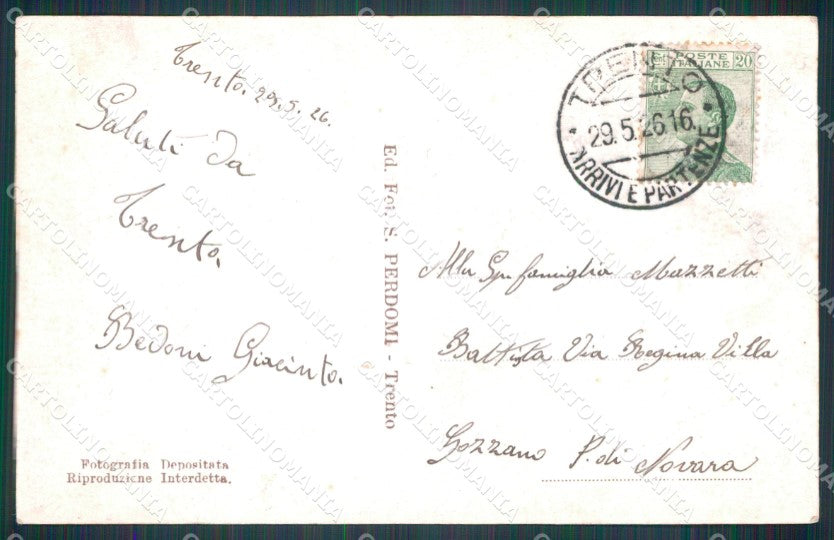 Trento. 29.5.26.
Saluti da
Trento,
Bedoni Giacinto.
Fotografia Depositata
Riproduzione Interdetta.
Ed. Fot. S. PERDOMI - Trento
POSTE
ITALIANE
20
TRENTO
29.5.26 16
ARRIVI E PARTENZE
Alla Famiglia Mazzetti
Battista Via Regina Villa
Gozzano P. di Novara
CARTOLINOMANIA